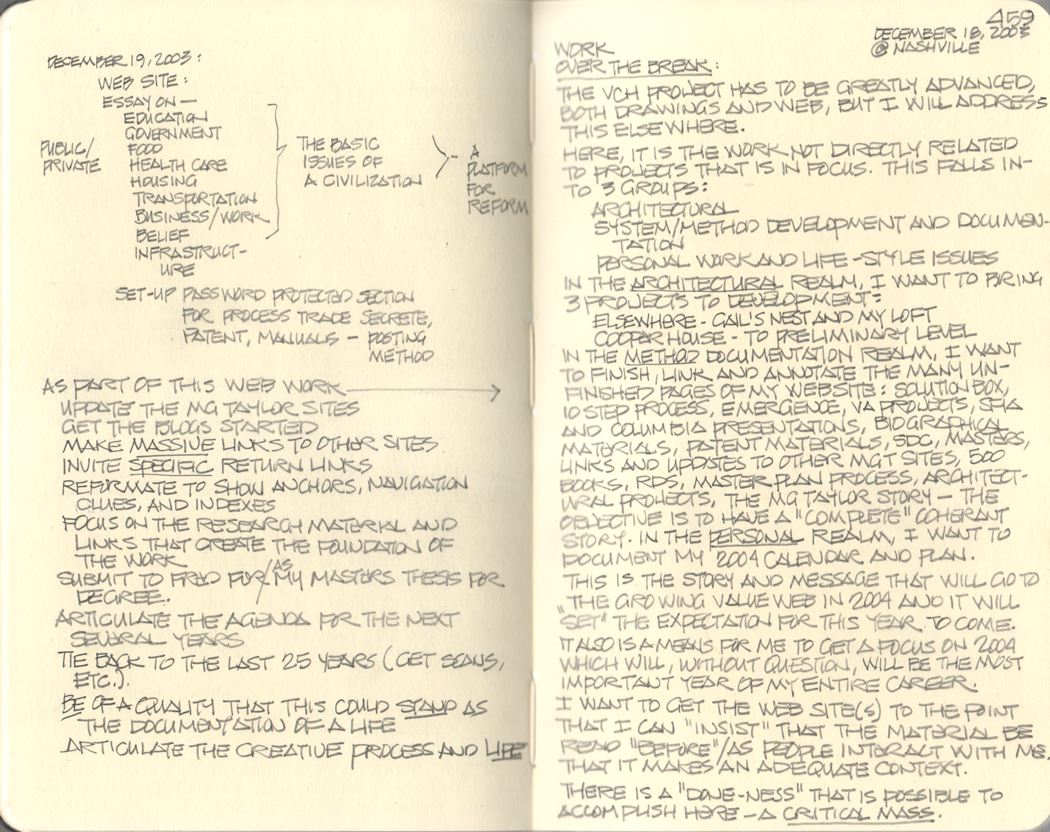 DECEMBER 19, 2003:
WEB SITE:
ESSAY ON —
EDUCATION
GOVERNMENT
PUBLIC/
PRIVATE
FOOD
HEALTH CARE
HOUSING
TRANSPORTATION
BUSINESS/WORK
BELIEF
INFRASTRUCT-
URE
THE BASIC
ISSUES OF
A CIVILIZATION
A
PLATFORM
FOR
REFORM
SET-UP PASSWORD PROTECTED SECTION
FOR PROCESS TRADE SECRETE,
PATENT, MANUALS — POSTING
METHOD
AS PART OF THIS WEB WORK
UPDATE THE MG TAYLOR SITES
GET THE BLOGS STARTED
MAKE MASSIVE LINKS TO OTHER SITES
INVITE SPECIFIC RETURN LINKS
REFORMATE TO SHOW ANCHORS, NAVIGATION
CLUES, AND INDEXES
FOCUS ON THE RESEARCH MATERIAL AND
LINKS THAT CREATE THE FOUNDATION OF
THE WORK
SUBMIT TO FRED FOR/AS MY MASTERS THESIS FOR
DEGREE.
ARTICULATE THE AGENDA FOR THE NEXT
SEVERAL YEARS
TIE BACK TO THE LAST 25 YEARS (GET SCANS,
ETC.).
BE OF A QUALITY THAT THIS COULD STAND AS
THE DOCUMENTATION OF A LIFE
ARTICULATE THE CREATIVE PROCESS AND LIFE
459
DECEMBER 18, 2003
@ NASHVILLE
WORK
OVER THE BREAK:
THE VCH PROJECT HAS TO BE GREATLY ADVANCED,
BOTH DRAWINGS AND WEB, BUT I WILL ADDRESS
THIS ELSEWHERE.
HERE, IT IS THE WORK NOT DIRECTLY RELATED
TO PROJECTS THAT IS IN FOCUS. THIS FALLS IN-
TO 3 GROUPS:
ARCHITECTURAL
SYSTEM/METHOD DEVELOPMENT AND DOCUMEN-
TATION
PERSONAL WORK AND LIFE-STYLE ISSUES
IN THE ARCHITECTURAL REALM, I WANT TO BRING
3 PROJECTS TO DEVELOPMENT:
ELSEWHERE - GAIL'S NEST AND MY LOFT
COOPER HOUSE - TO PRELIMINARY LEVEL
IN THE METHOD DOCUMENTATION REALM, I WANT
TO FINISH, LINK AND ANNOTATE THE MANY UN-
FINISHED PAGES OF MY WEBSITE: SOLUTION BOX,
10 STEP PROCESS, EMERGENCE, VA PROJECTS, SFIA
AND COLUMBIA PRESENTATIONS, BIOGRAPHICAL
MATERIALS, PATENT MATERIALS, SDC, MASTERS,
LINKS AND UPDATES TO OTHER MGT SITES, 500
BOOKS, RDS, MASTER PLAN PROCESS, ARCHITECT-
URAL PROJECTS, THE MG TAYLOR STORY — THE
OBJECTIVE IS TO HAVE A "COMPLETE" COHERANT
STORY. IN THE PERSONAL REALM, I WANT TO
DOCUMENT MY 2004 CALENDAR AND PLAN.
THIS IS THE STORY AND MESSAGE THAT WILL GO TO
THE GROWING VALUE WEB IN 2004 AND IT WILL
"SET" THE EXPECTATION FOR THIS YEAR TO COME.
IT ALSO IS A MEANS FOR ME TO GET A FOCUS ON 2004
WHICH WILL, WITHOUT QUESTION, WILL BE THE MOST
IMPORTANT YEAR OF MY ENTIRE CAREER.
I WANT TO GET THE WEB SITE(S) TO THE POINT
THAT I CAN "INSIST" THAT THE MATERIAL BE
READ "BEFORE"/AS PEOPLE INTERACT WITH ME.
THAT IT MAKES AN ADEQUATE CONTEXT.
THERE IS A "DONE-NESS" THAT IS POSSIBLE TO
ACCOMPLISH HERE — A CRITICAL MASS.